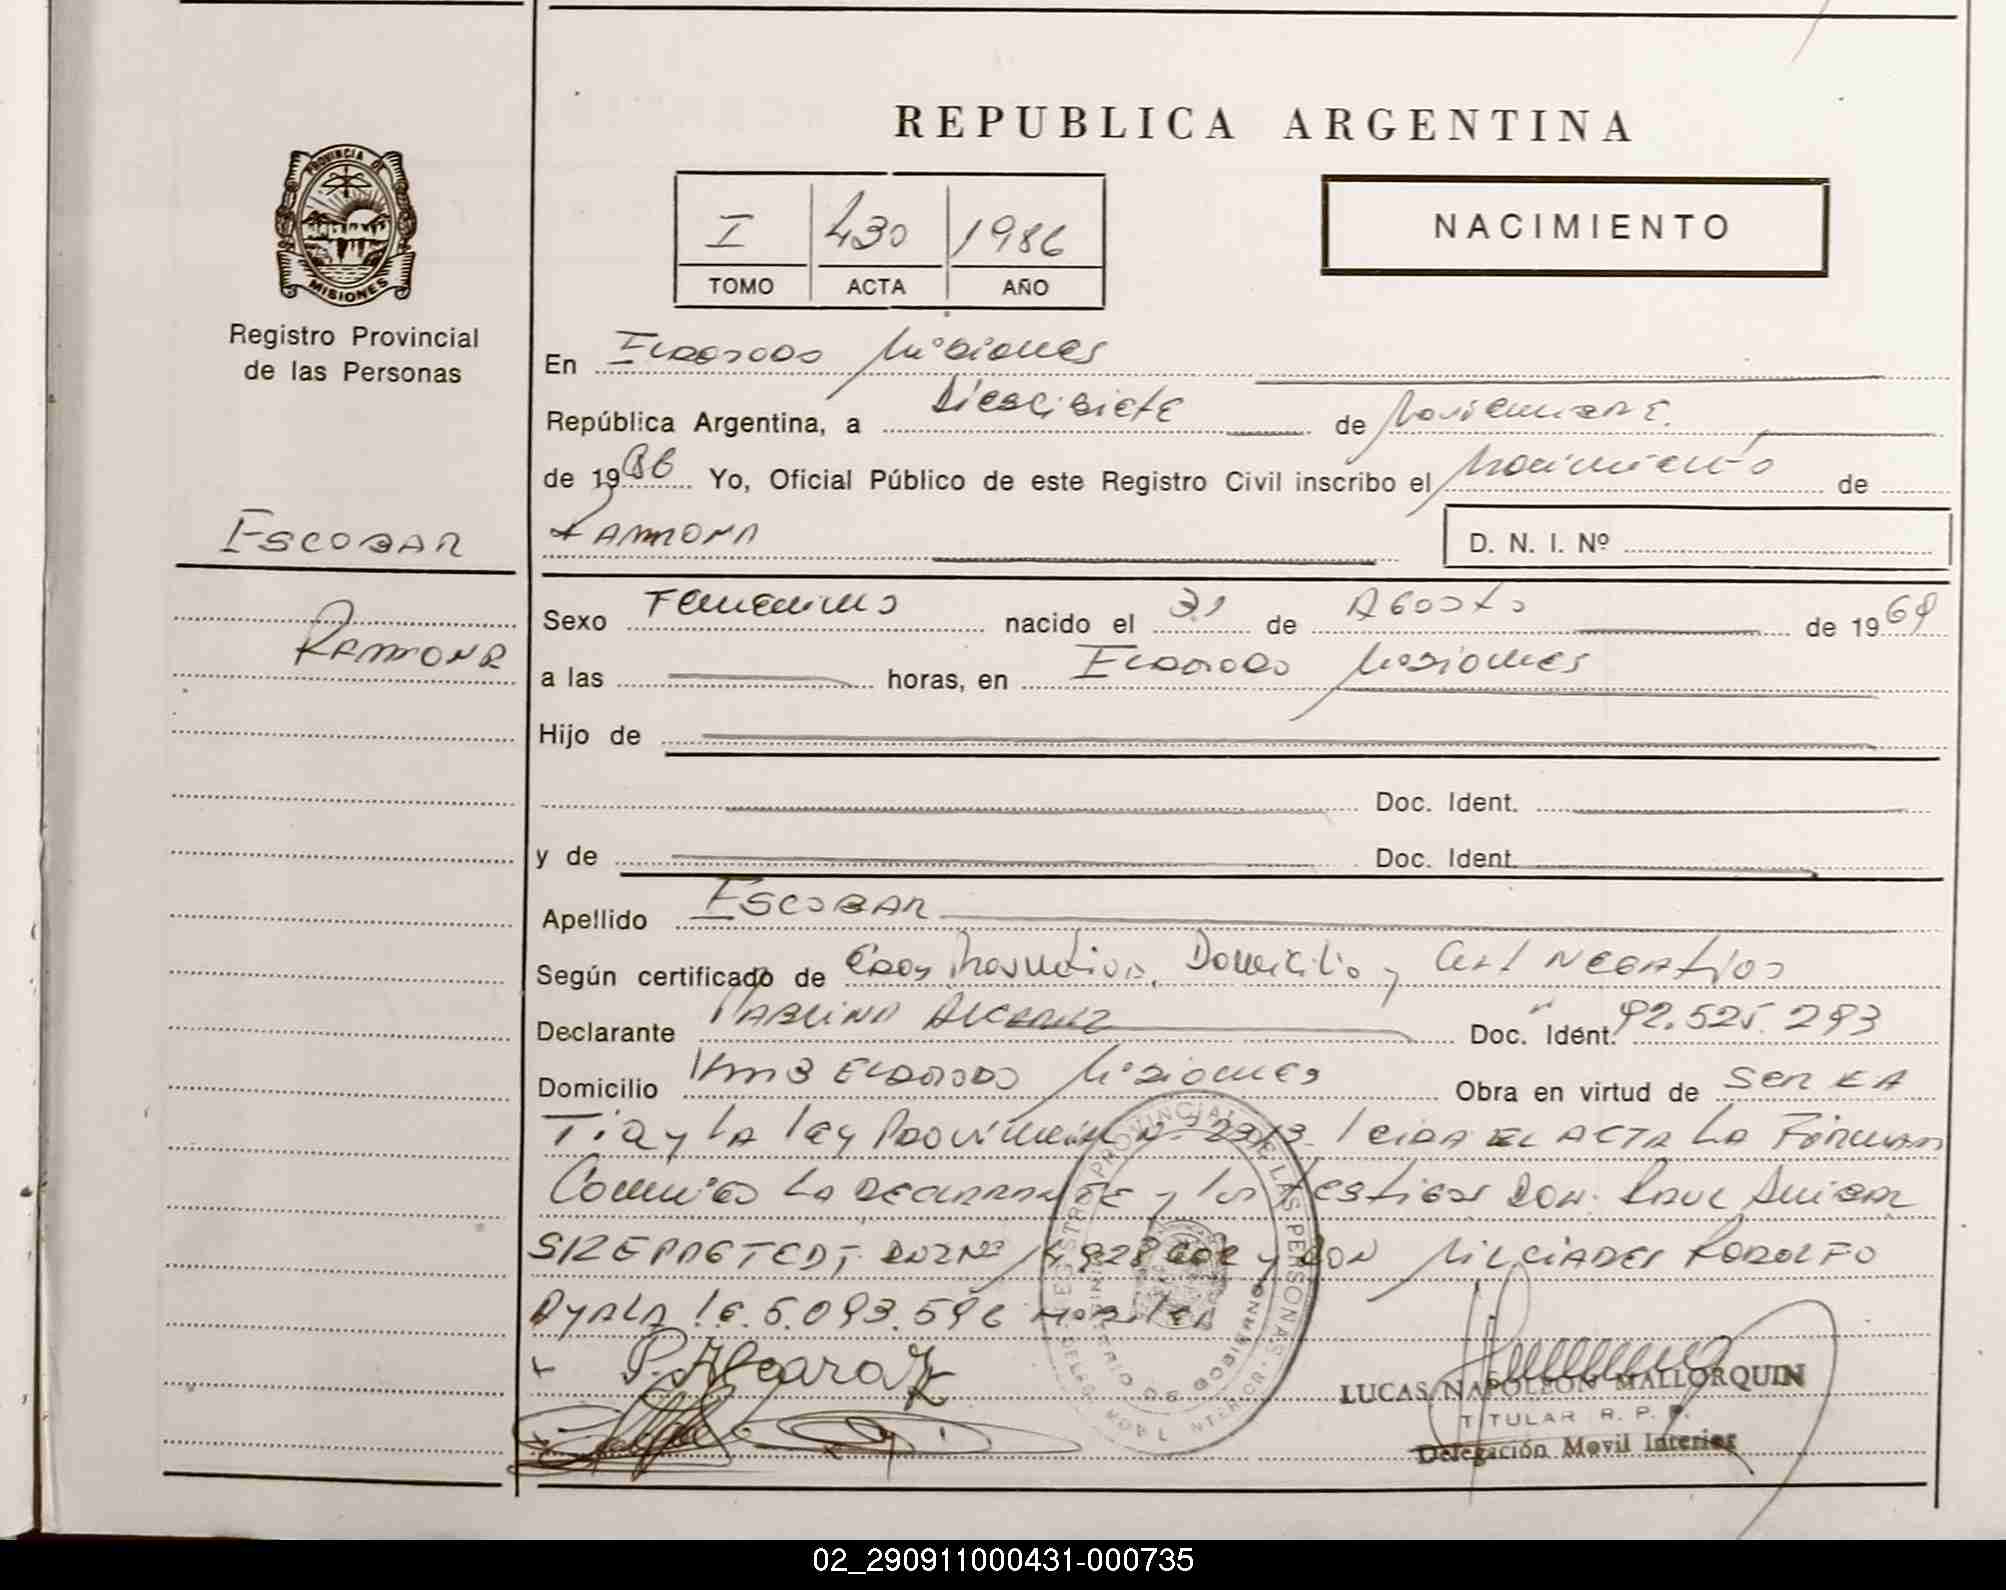 REPUBLICA ARGENTINA
PROVINCIA DE
MISIONES
Registro Provincial
de las Personas
I 430 1986
TOMO ACTA AÑO
NACIMIENTO
En Eldorado Misiones
República Argentina, a Diescisiete de Noviembre
de 1986 Yo, Oficial Público de este Registro Civil inscribo el Nacimiento de
Ramona
D. N. I. Nº
ESCOBAR
RAMONA
Sexo Femenino nacido el 31 de Agosto de 1969
a las horas, en Eldorado Misiones
Hijo de
Doc. Ident.
y de Doc. Ident.
Apellido ESCOBAR
Según certificado de Domicilio y Cert Negativo
Declarante Pablina Alcaraz Doc. Ident. 92.525.293
Domicilio Km 3 Eldorado Misiones Obra en virtud de ser la
Tia y la ley Provincial Nº 2313. leida el acta la Firman
Conmigo la declarante y los testigos Don. Raul Anibal
y Don Milciades Rodolfo
Ayala l.e. 5.093.596
P. Alcaraz
REGISTRO PROVINCIAL DE LAS PERSONAS
MINISTERIO DE GOBIERNO
LUCAS NAPOLEON MALLORQUIN
TITULAR R. P. P.
Delegación Movil Interior
02_290911000431-000735